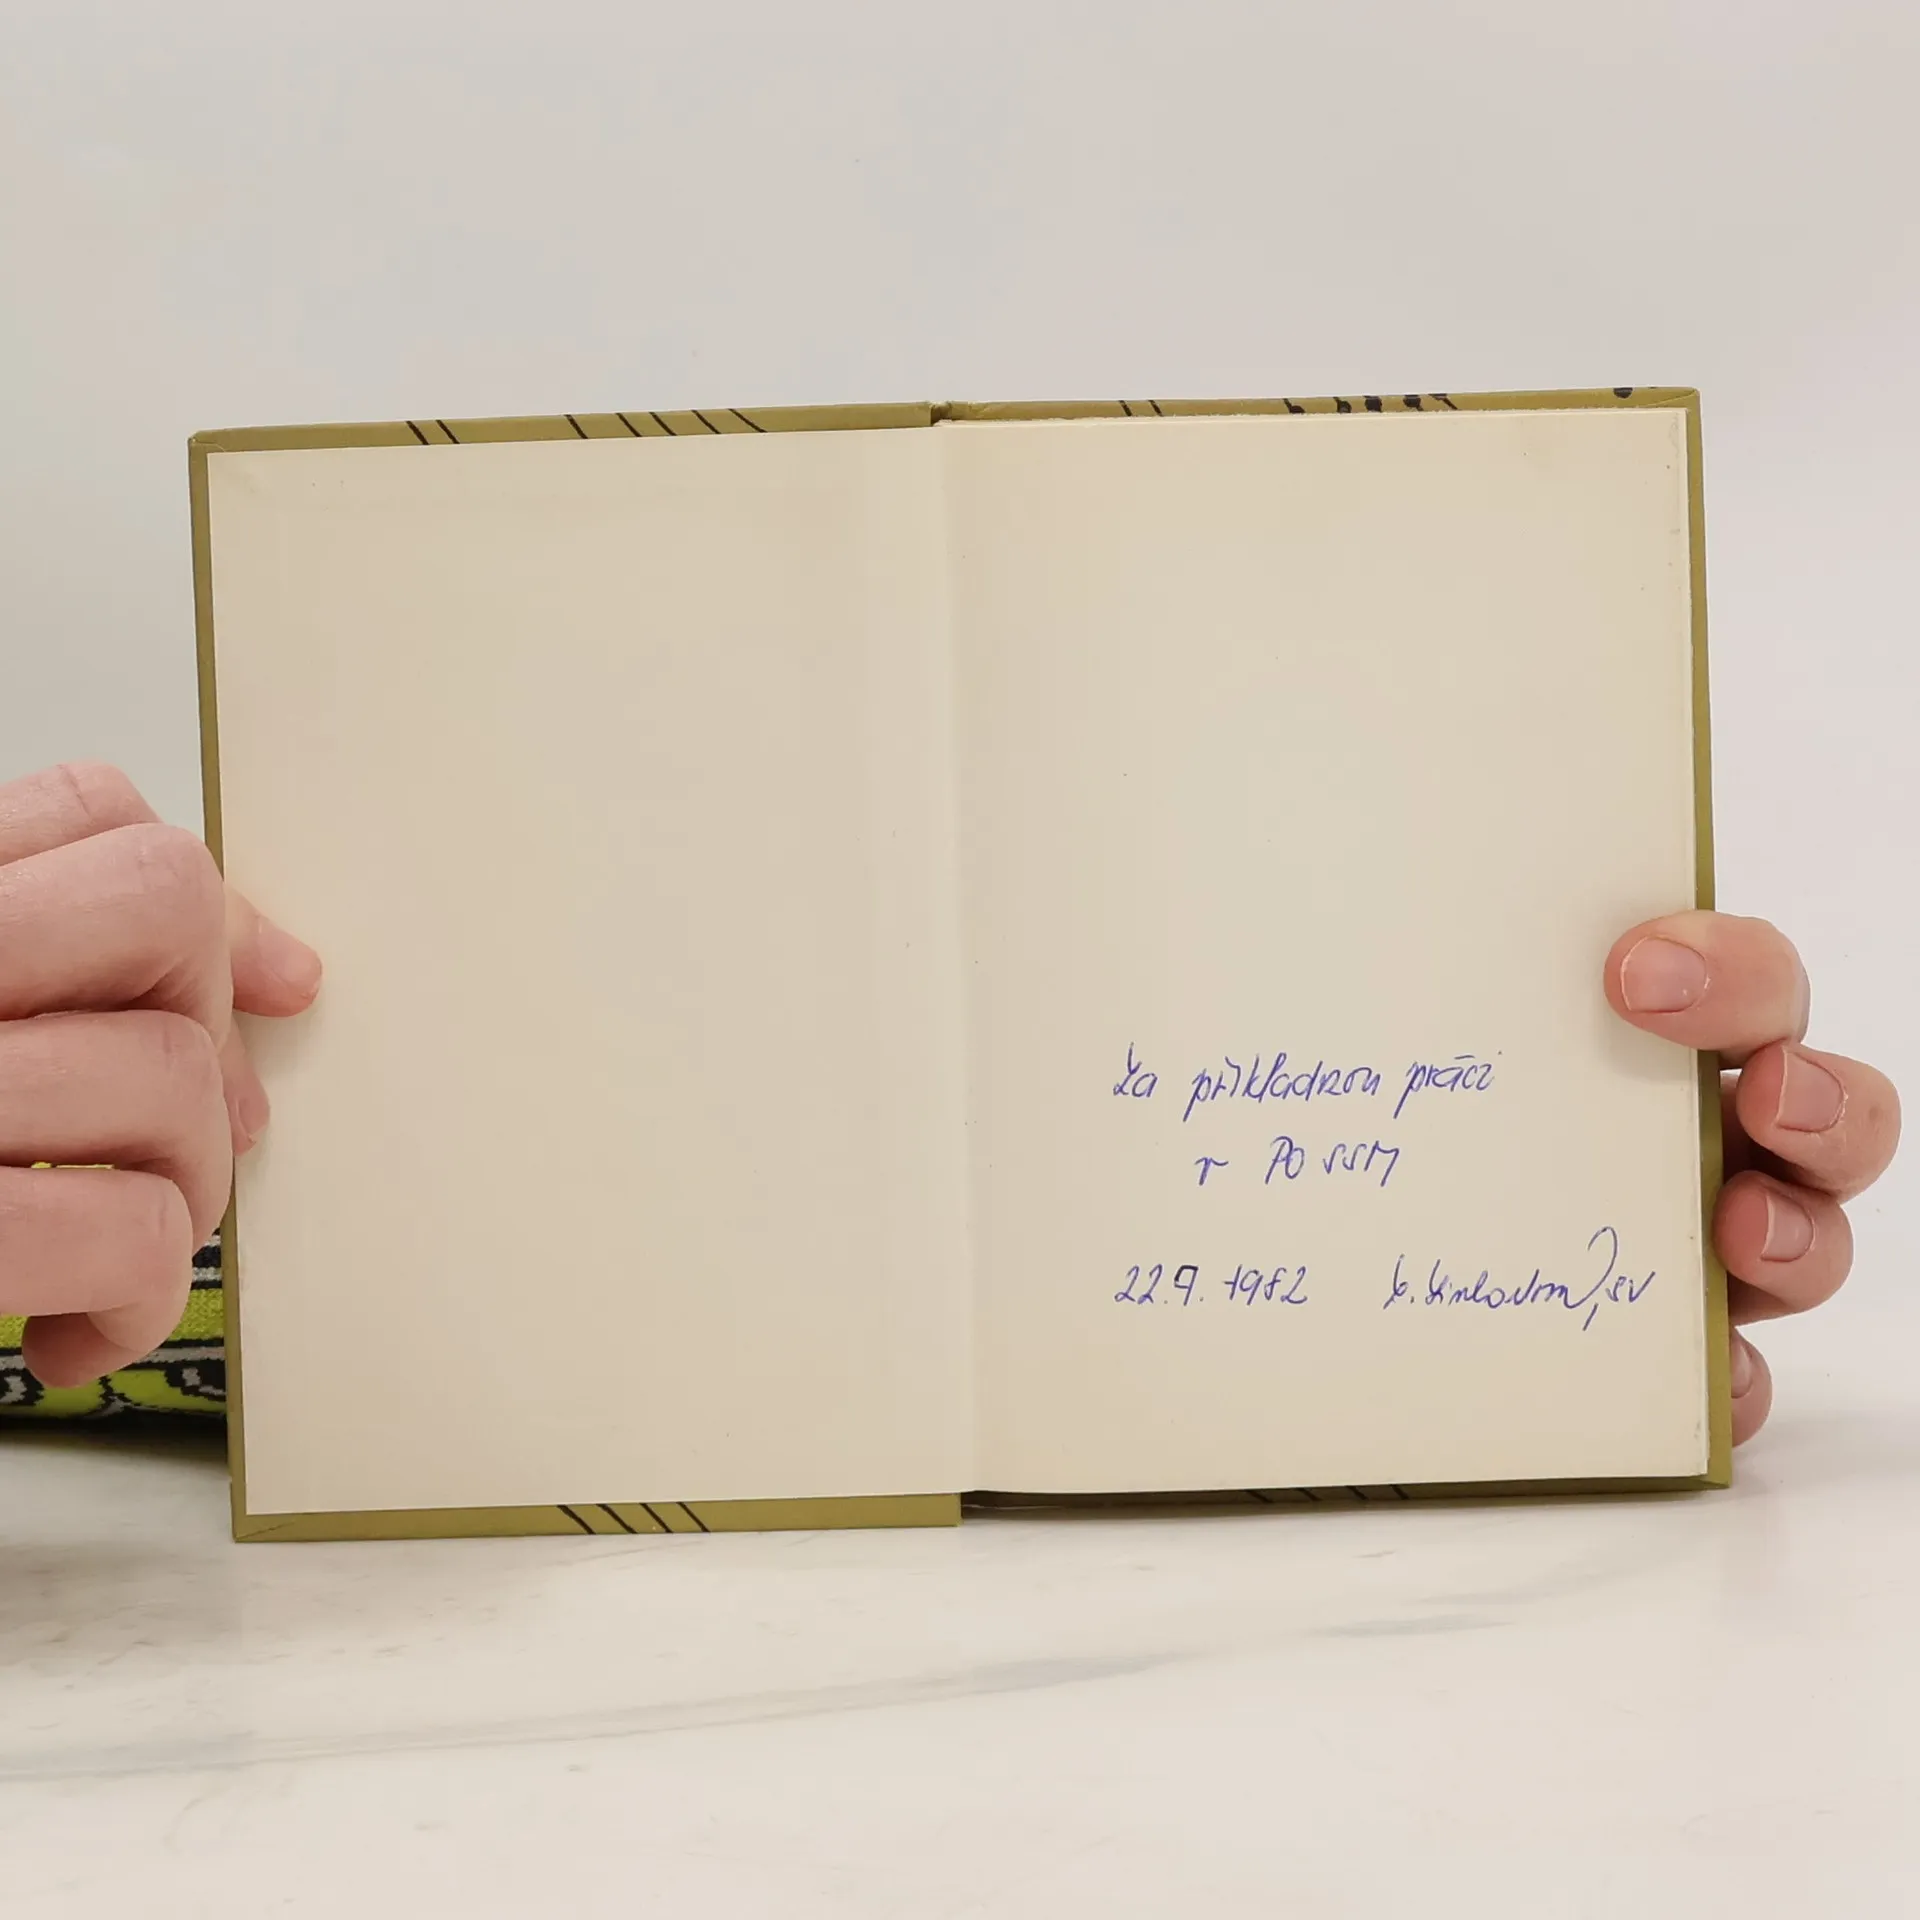 Za příkladnou práci
v PO SSM
22.9. 1982